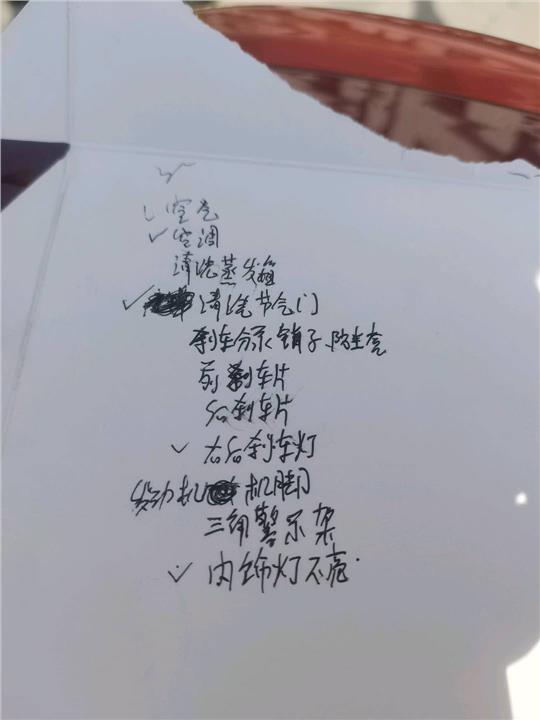 ✓空气
✓空调
清洗蒸发箱
✓清洗节气门
刹车分泵销子、防尘壳
前刹车片
后刹车片
✓右后刹车灯
发动机机脚
三角警示架
✓内饰灯不亮.